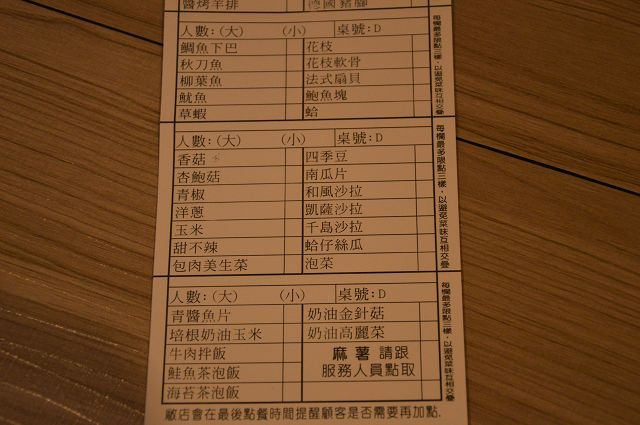 醬烤羊排 德國豬腳
人數:(大) (小) 桌號:D
鯛魚下巴 花枝
秋刀魚 花枝軟骨
柳葉魚 法式扇貝
魷魚 鮑魚塊
草蝦 蛤
每欄最多限點三樣，以避免菜味互相交疊
人數:(大) (小) 桌號:D
香菇 四季豆
杏鮑菇 南瓜片
青椒 和風沙拉
洋蔥 凱薩沙拉
玉米 千島沙拉
甜不辣 蛤仔絲瓜
包肉美生菜 泡菜
每欄最多限點三樣，以避免菜味互相交疊
人數:(大) (小) 桌號:D
青醬魚片 奶油金針菇
培根奶油玉米 奶油高麗菜
牛肉拌飯 麻薯 請跟
鮭魚茶泡飯 服務人員點取
海苔茶泡飯
每欄最多限點三樣，以避免菜味互相交疊
敝店會在最後點餐時間提醒顧客是否需要再加點.